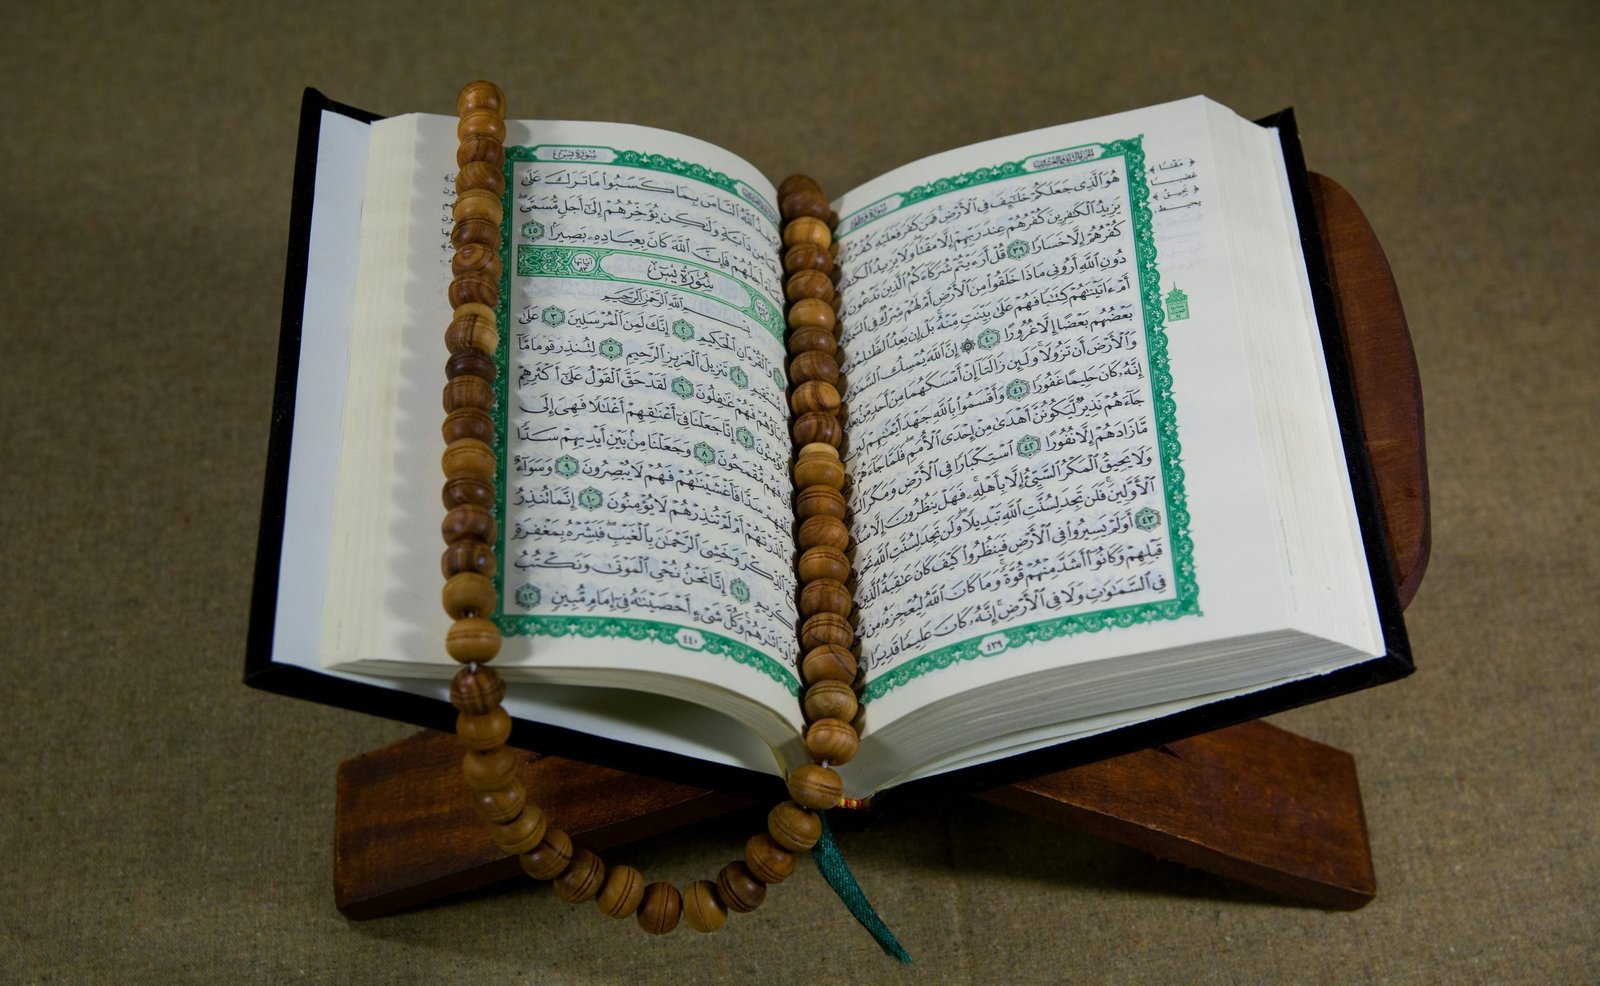 سُورَةُ فَاطِرٍ
الجُزْءُ الثَّانِي وَالعِشْرُونَ
هُوَ ٱلَّذِى جَعَلَكُمْ خَلَٰٓئِفَ فِى ٱلْأَرْضِ فَمَن كَفَرَ فَعَلَيْهِ كُفْرُهُۥ
يَزِيدُ ٱلْكَٰفِرِينَ كُفْرُهُمْ عِندَ رَبِّهِمْ إِلَّا مَقْتًا وَلَا يَزِيدُ
كُفْرُهُمْ إِلَّا خَسَارًا ٣٩ قُلْ أَرَءَيْتُمْ شُرَكَآءَكُمُ ٱلَّذِينَ تَدْعُونَ
دُونِ ٱللَّهِ أَرُونِى مَاذَا خَلَقُوا۟ مِنَ ٱلْأَرْضِ أَمْ لَهُمْ شِرْكٌ فِى
أَمْ ءَاتَيْنَٰهُمْ كِتَٰبًا فَهُمْ عَلَىٰ بَيِّنَتٍ مِّنْهُ ۚ بَلْ إِن يَعِدُ ٱلظَّٰلِمُونَ
بَعْضُهُم بَعْضًا إِلَّا غُرُورًا ٤٠ ۞ إِنَّ ٱللَّهَ يُمْسِكُ ٱلسَّمَٰوَٰتِ
وَٱلْأَرْضَ أَن تَزُولَا ۚ وَلَئِن زَالَتَآ إِنْ أَمْسَكَهُمَا مِنْ أَحَدٍ مِّنۢ
إِنَّهُۥ كَانَ حَلِيمًا غَفُورًا ٤١ وَأَقْسَمُوا۟ بِٱللَّهِ جَهْدَ أَيْمَٰنِهِمْ لَئِن
جَآءَهُمْ نَذِيرٌ لَّيَكُونُنَّ أَهْدَىٰ مِنْ إِحْدَى ٱلْأُمَمِ ۖ فَلَمَّا جَآءَهُمْ
مَّا زَادَهُمْ إِلَّا نُفُورًا ٤٢ ٱسْتِكْبَارًا فِى ٱلْأَرْضِ وَمَكْرَ
وَلَا يَحِيقُ ٱلْمَكْرُ ٱلسَّيِّئُ إِلَّا بِأَهْلِهِۦ ۚ فَهَلْ يَنظُرُونَ إِلَّا
ٱلْأَوَّلِينَ ۚ فَلَن تَجِدَ لِسُنَّتِ ٱللَّهِ تَبْدِيلًا ۖ وَلَن تَجِدَ لِسُنَّتِ ٱللَّهِ
٤٣ أَوَلَمْ يَسِيرُوا۟ فِى ٱلْأَرْضِ فَيَنظُرُوا۟ كَيْفَ كَانَ عَٰقِبَةُ ٱلَّذِينَ
قَبْلِهِمْ وَكَانُوٓا۟ أَشَدَّ مِنْهُمْ قُوَّةً ۚ وَمَا كَانَ ٱللَّهُ لِيُعْجِزَهُۥ مِن
فِى ٱلسَّمَٰوَٰتِ وَلَا فِى ٱلْأَرْضِ ۚ إِنَّهُۥ كَانَ عَلِيمًا قَدِيرًا
٤٣٩
﴿ مَقْتًا ﴾
﴿ يَحِيقُ ﴾
يحيط
سُورَةُ يسٓ
ٱللَّهُ ٱلنَّاسَ بِمَا كَسَبُوا۟ مَا تَرَكَ عَلَىٰ
دَآبَّةٍ وَلَٰكِن يُؤَخِّرُهُمْ إِلَىٰٓ أَجَلٍ مُّسَمًّى ۖ
أَجَلُهُمْ فَإِنَّ ٱللَّهَ كَانَ بِعِبَادِهِۦ بَصِيرًۢا ٤٥
سُورَةُ يسٓ
آيَاتُهَا ٨٣
بِسْمِ ٱللَّهِ ٱلرَّحْمَٰنِ ٱلرَّحِيمِ
وَٱلْقُرْءَانِ ٱلْحَكِيمِ ٢ إِنَّكَ لَمِنَ ٱلْمُرْسَلِينَ ٣ عَلَىٰ
مُّسْتَقِيمٍ ٤ تَنزِيلَ ٱلْعَزِيزِ ٱلرَّحِيمِ ٥ لِتُنذِرَ قَوْمًا مَّآ
ءَابَآؤُهُمْ فَهُمْ غَٰفِلُونَ ٦ لَقَدْ حَقَّ ٱلْقَوْلُ عَلَىٰٓ أَكْثَرِهِمْ
يُؤْمِنُونَ ٧ إِنَّا جَعَلْنَا فِىٓ أَعْنَٰقِهِمْ أَغْلَٰلًا فَهِىَ إِلَى
فَهُم مُّقْمَحُونَ ٨ وَجَعَلْنَا مِنۢ بَيْنِ أَيْدِيهِمْ سَدًّا
سَدًّا فَأَغْشَيْنَٰهُمْ فَهُمْ لَا يُبْصِرُونَ ٩ وَسَوَآءٌ
ءَأَنذَرْتَهُمْ أَمْ لَمْ تُنذِرْهُمْ لَا يُؤْمِنُونَ ١٠ إِنَّمَا تُنذِرُ
ٱلذِّكْرَ وَخَشِىَ ٱلرَّحْمَٰنَ بِٱلْغَيْبِ ۖ فَبَشِّرْهُ بِمَغْفِرَةٍ
كَرِيمٍ ١١ إِنَّا نَحْنُ نُحْىِ ٱلْمَوْتَىٰ وَنَكْتُبُ
وَءَاثَٰرَهُمْ ۚ وَكُلَّ شَىْءٍ أَحْصَيْنَٰهُ فِىٓ إِمَامٍ مُّبِينٍ ١٢
٤٤٠